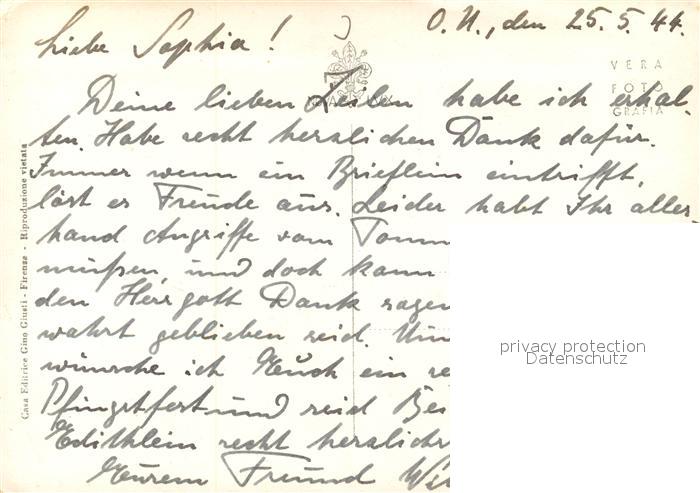 O.U., den 25.5.44.
Liebe Sophia!
VERA
FOTO
GRAFIA
Deine lieben Zeilen habe ich erhal-
ten. Habe recht herzlichen Dank dafür.
Immer wenn ein Brieflein eintrifft,
löst es Freude aus. Leider habt Ihr aller-
hand Angriffe vom Tomm
müßen, und doch kann
den Herrgott Dank sagen
wahrt geblieben seid. Nun
wünsche ich Euch ein re
Pfingstfest und seid Bei
Edithlein recht herzlichs
Eurem Freund Wi
Casa Editrice Gino Giusti - Firenze - Riproduzione vietata
privacy protection
Datenschutz